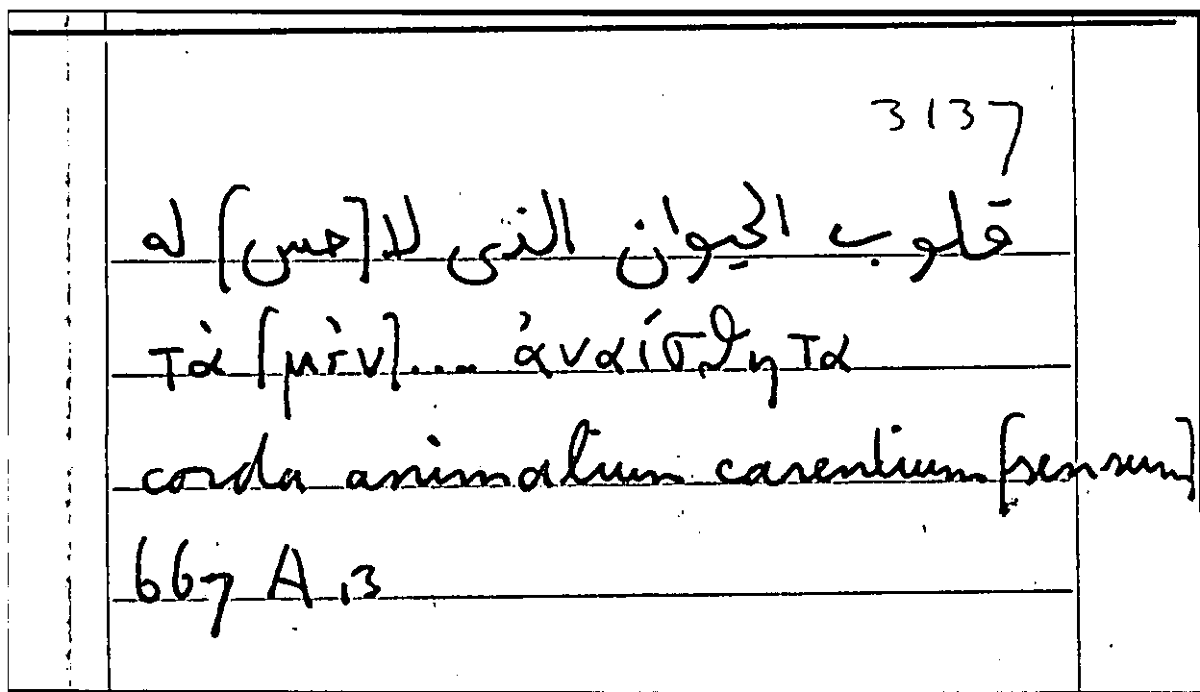 3137
قلوب الحيوان الذى لا [حس] له
τὰ [μὲν].... ἀναίσθητα
corda animalium carentium [sensum]
667 A 13